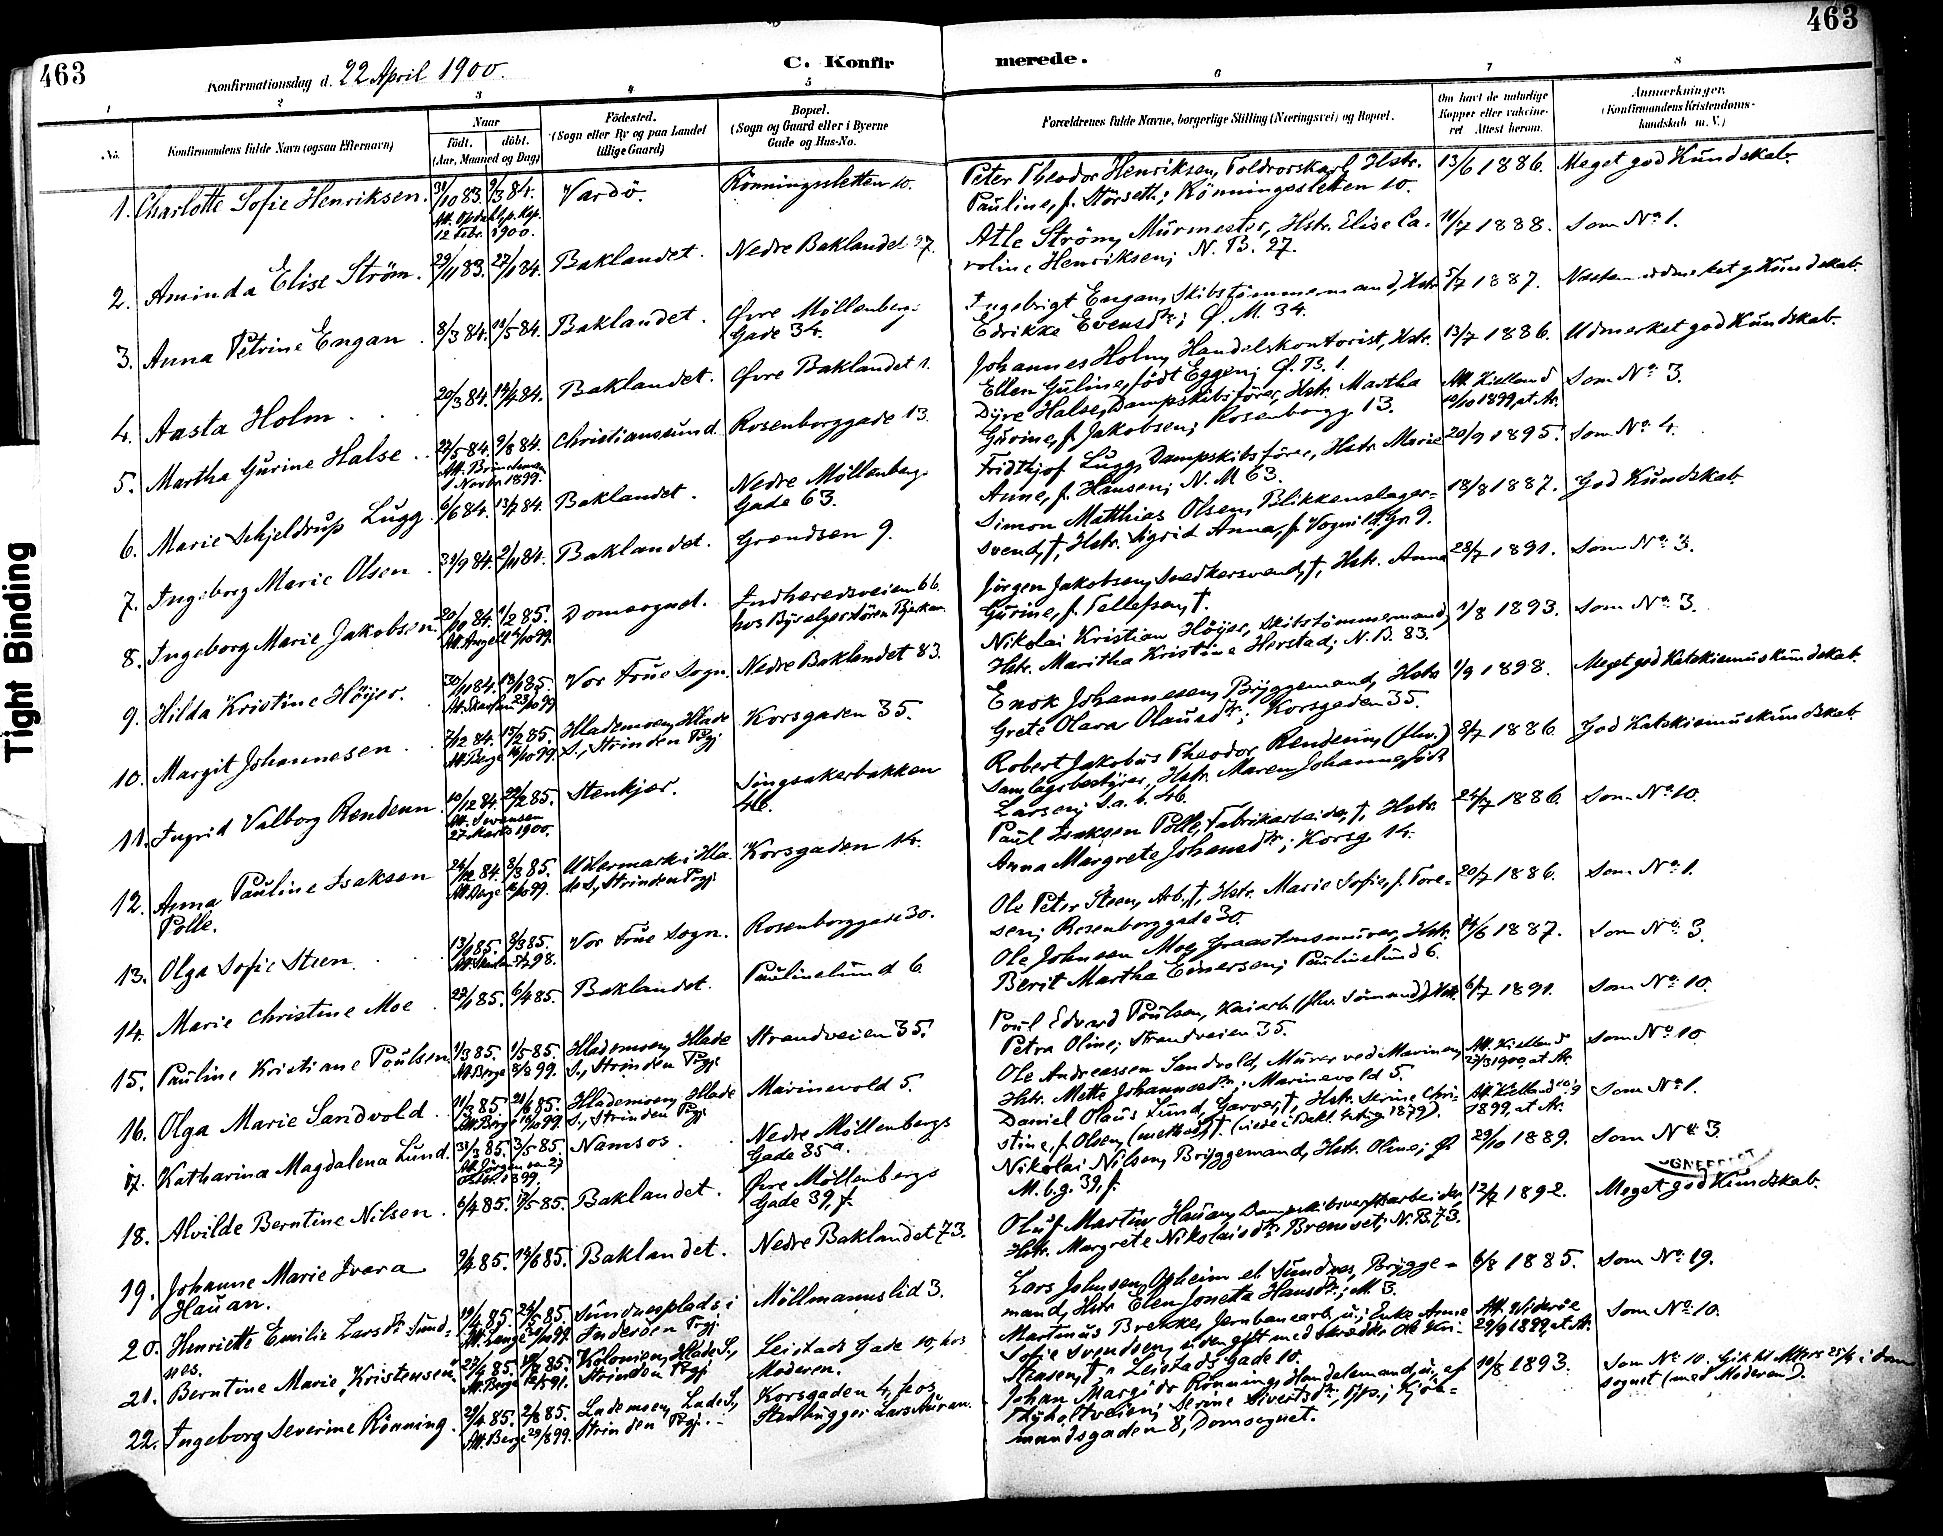 463
463
Konfirmationsdag d. 22 April 1900.
C. Konfirmerede.
1 2 3 4 5 6 7 8
No.
Konfirmandens fulde Navn (ogsaa Efternavn)
Naar
født. døbt.
(Aar, Maaned og Dag)
Fødested.
(Sogn eller By og paa Landet
tillige Gaard)
Bopæl.
(Sogn og Gaard eller i Byerne
Gade og Hus-No.
Forældrenes fulde Navne, borgerlige Stilling (Næringsvei) og Bopæl.
Om havt de naturlige
Kopper eller vakcineret
Attest herom.
Anmærkninger.
(Konfirmandens Kristendomskundskab
m. V.)
1. Charlotte Sofie Henriksen. 31/10 83. 9/3 84. Vardö. Rönningsletten 10. Peter Theodor Henriksen, Toldrorskarl, Hstr. 13/6 1886. Meget god Kundskab.
12 Febr. 1900. Pauline, f. Störseth; Rönningsletten 10.
2. Aminda Elise Ström. 29/11 83. 27/1 84. Baklandet. Nedre Baklandet 27. Atle Ström, Murmester, Hstr. Elise Ca- 10/7 1888. Som No. 1.
roline Henriksen; N. B. 27.
3. Anna Petrine Engan. 8/3 84. 18/5 84. Baklandet. Øvre Møllenbergs Ingebrigt Engan, Skibstømmermand, Hstr. 5/7 1887. Næsten udmerket g. Kundskab.
Gade 34. Edrikke Evensdtr; Ø. M. 34.
4. Aasta Holm. 20/3 84. 14/4 84. Baklandet. Øvre Baklandet 1. Johannes Holm, Handelskontorist, Hstr. 13/7 1886. Udmerket god Kundskab.
Ellen Guline, født Eggen; Ø. B. 1.
5. Martha Gurine Halse. 23/5 84. 9/8 84. Christianssund. Rosenborggade 13. Dyre Halse, Dampskibsfører, Hstr. Martha Att. Kielland Som No. 3.
1 Novbr. 1899. Gurine, f. Jakobsen; Rosenborgg. 13. 19/10 1899, at Ar.
6. Marie Schjeldrup Lugg. 6/6 84. 13/7 84. Baklandet. Nedre Møllenbergs Fridthjof Lugg, Dampskibsfører, Hstr. Marie 20/9 1895. Som No. 4.
Gade 63. Anne, f. Hansen; N. M 63.
7. Ingeborg Marie Olsen. 31/9 84. 2/11 84. Baklandet. Grændsen 9. Simon Matthias Olsen, Blikkenslager- 18/8 1887. God Kundskab.
svend, †, Hstr. Sigrid Anna, f. Vognild, Gr. 9.
8. Ingeborg Marie Jakobsen. 20/11 84. 1/2 85. Domsognet. Indherredsveien 66 Jörgen Jakobsen, Snedkersvend, †, Hstr. Anna 28/7 1891. Som No. 3.
Gurine, f. Tellefsen, †.
9. Hilda Kristine Höyer. 30/11 84. 18/1 85. Vor Frue Sogn. Nedre Baklandet 83. Nikolai Kristian Höyer, Skibstømmermand, 1/8 1893. Som No. 3.
Hstr. Maritha Kristine Herstad; N. B. 83.
10. Margit Johannesen. 7/12 84. 15/2 85. Hlademoen, Hlade Korsgaden 35. Enok Johannesen, Bryggemand, Hstr. 1/9 1898. Meget god Katekismuskundskab.
Att. Berge 16/10 99. S., Strinden Pgj. Grete Olava Olausdtr; Korsgaden 35.
11. Ingrid Valborg Rendum. 10/12 84. 22/2 85. Stenkjær. Singsakerbakken Robert Jakobus Theodor Rendum, (fhv.) 8/7 1886. God Katekismuskundskab.
27 Marts 1900. 46. Samlagsbestyrer, Hstr. Maren Johanne, født
Larsen; S.a.b. 46.
12. Anna Pauline Isaksen 24/12 84. 8/3 85. Korsgaden 14. Paul Isaksen Polle, Fabrikarbeider, †, Hstr. 24/7 1886. Som No. 10.
Polle. Att. Berge 16/10 99. de S., Strinden Pgj. Anna Margrete Johansdtr; Korsg. 14.
13. Olga Sofie Steen 13/1 85. 8/3 85. Vor Frue Sogn. Rosenborggade 30. Ole Peter Steen, Arb., †, Hstr. Marie Sofie, f. Tore- 20/7 1886. Som No. 1.
sen; Rosenborggade 30.
14. Marie Christine Moe. 27/1 85. 6/4 85. Baklandet. Paulinelund 6. Ole Johnsen Moe, Graastensmurer, Hstr. 14/6 1887. Som No. 3.
Berit Martha Einersen; Paulinelund 6.
15. Pauline Kristiane Poulsen 1/3 85. 1/5 85. Hlademoen, Hlade Strandveien 35. Poul Edvard Poulsen, Kaiarb. (fhv. Sömand), Hstr. 6/7 1891. Som No. 10.
Att. Berge 8/8 99. S., Strinden Pgj. Petra Oline; Strandveien 35.
16. Olga Marie Sandvold. 11/3 85. 21/6 85. Hlademoen, Hlade Marinevold 5. Ole Andreassen Sandvold, Murer ved Marinen, Att. Kielland Som No. 10
S., Strinden Pgj. Hstr. Mette Johannesdtr; Marinevold 5. 27/3 1900, at Ar.
17. Katharina Magdalena Lund. 31/3 85. 3/5 85. Namsos. Nedre Møllenbergs Daniel Olaus Lund, Garver, †, Hstr. Serine Chri- Som No. 1.
Gade 85 a. stine, f. Olsen 1899, at Ar.
18. Alvilde Berntine Nilsen. 6/4 85. 17/5 85. Baklandet. Øvre Møllenbergs Nikolai Nilsen, Bryggemand, Hstr. Oline; Ø. 29/10 1889. Som No. 3.
Gade 39, f. M.b.g. 39, f.
19. Johanne Marie Ivara 9/4 85. 14/6 85. Baklandet. Nedre Baklandet 73. Oluf Martin Hauan, Dampskibsverftsarbeider, 12/7 1892. Meget god Kundskab.
Hauan. Hstr. Margrete Nikolaisdtr Bremset; N. B. 73.
20. Henriette Emilie Larsdtr Sund- 19/4 85. 24/5 85. Sundnesplads i Möllmannslid 3. Lars Johnsen Opheim el. Sundnes, Brygge- 6/8 1885. Som No. 19.
nes. Inderøen Pgj. mand, Hstr. Elen Jonetta Hansdtr; M. 3.
21. Berntine Marie Kristensen Kolonien, Hlade S., Leistads Gade 10, hos Martinus Brekke, Jernbanearb., u; Enke Anne Som No. 10.
Strinden Pgj. Moderen. Sofie Svendsen, siden gift med Ole Kri- 29/9 1899, at Ar.
stensen, †; Leistads Gade 10.
22. Ingeborg Severine Rönning. 29/4 85. 2/8 85. Lademoen, Lade S., Korsgaden 4, hos Johan Margido Rönning, Handelsmand, u, af 10/8 1893. Som No. 10.
Att. Berge 29/8 99. Strinden Pgj. Stenhugger Lars Auran. Tyholtveien; Serine Sivertsdtr; Kjöb- sognet (med Moderen).
mandsgaden 8, Domsognet.
Tight Binding